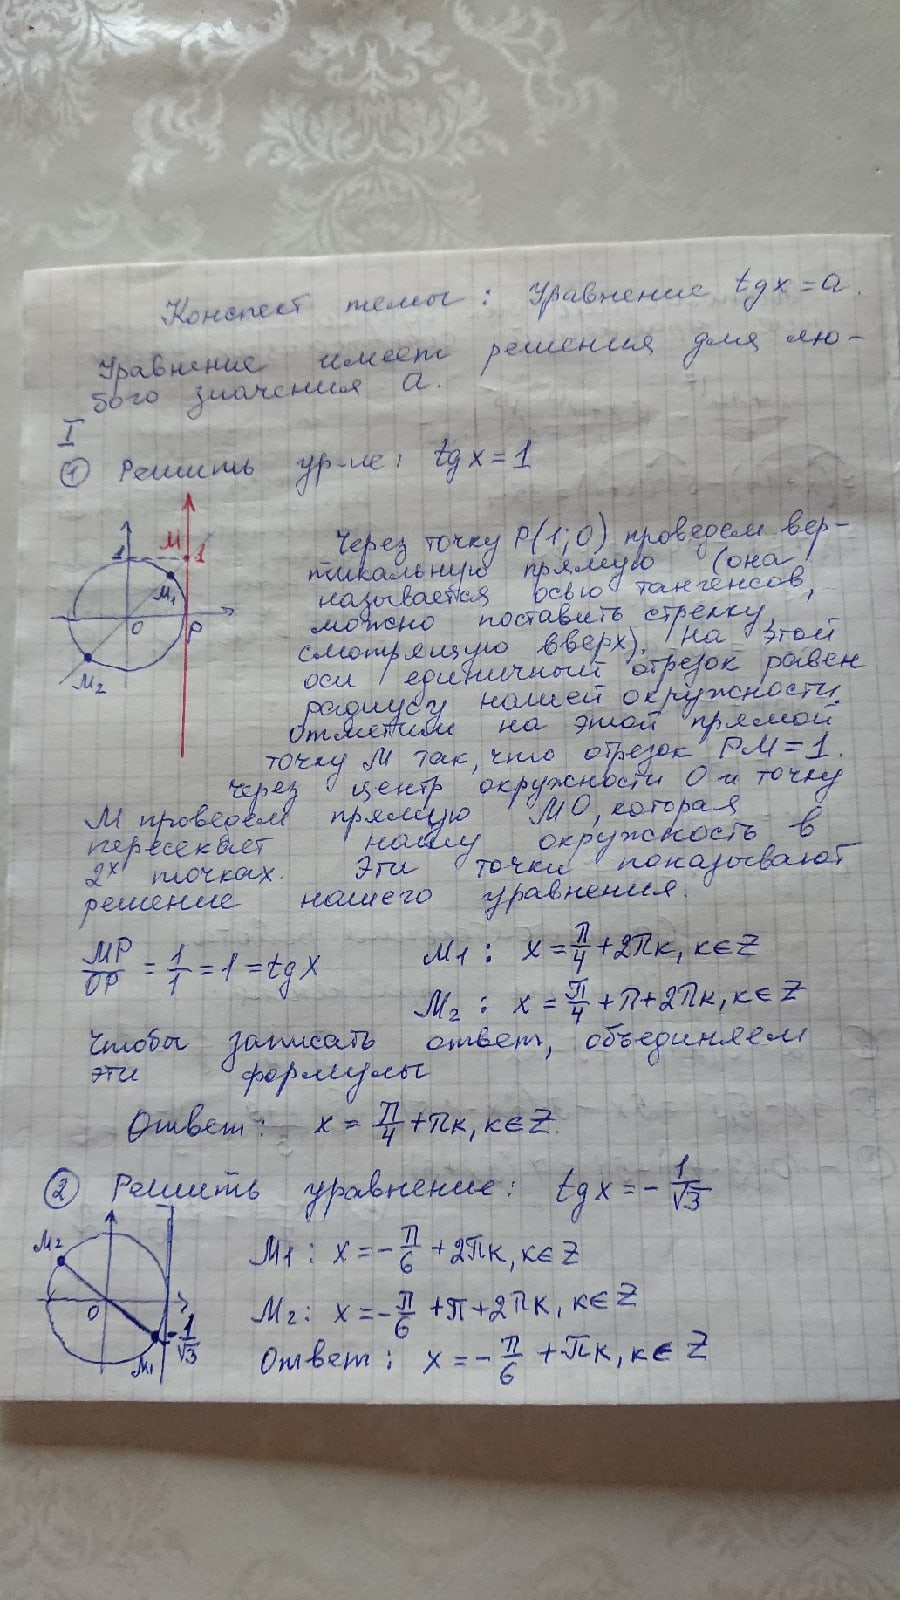 Конспект темы: Уравнение tgx=a.
Уравнение имеет решения для лю-
бого значения a.
I
① Решить ур-ие: tgx=1
1 M 1
M₁
O P
M₂
Через точку P(1;0) проведем вер-
тикальную прямую (она
называется осью тангенсов,
можно поставить стрелку,
смотрящую вверх). На этой
оси единичный отрезок равен
радиусу нашей окружности,
отметим на этой прямой
точку M так, что отрезок PM=1.
Через центр окружности O и точку
M проведем прямую MO, которая
пересекает нашу окружность в
2ˣ точках. Эти точки показывают
решение нашего уравнения.
MP/OP = 1/1 = 1 = tgx
M₁: x = π/4 + 2πk, k∈Z
M₂: x = π/4 + π + 2πk, k∈Z
Чтобы записать ответ, объединяем
эти формулы
Ответ: x = π/4 + πk, k∈Z.
② Решить уравнение: tgx = -1/√3
M₂
O
M₁ -1/√3
M₁: x = -π/6 + 2πk, k∈Z
M₂: x = -π/6 + π + 2πk, k∈Z
Ответ: x = -π/6 + πk, k∈Z